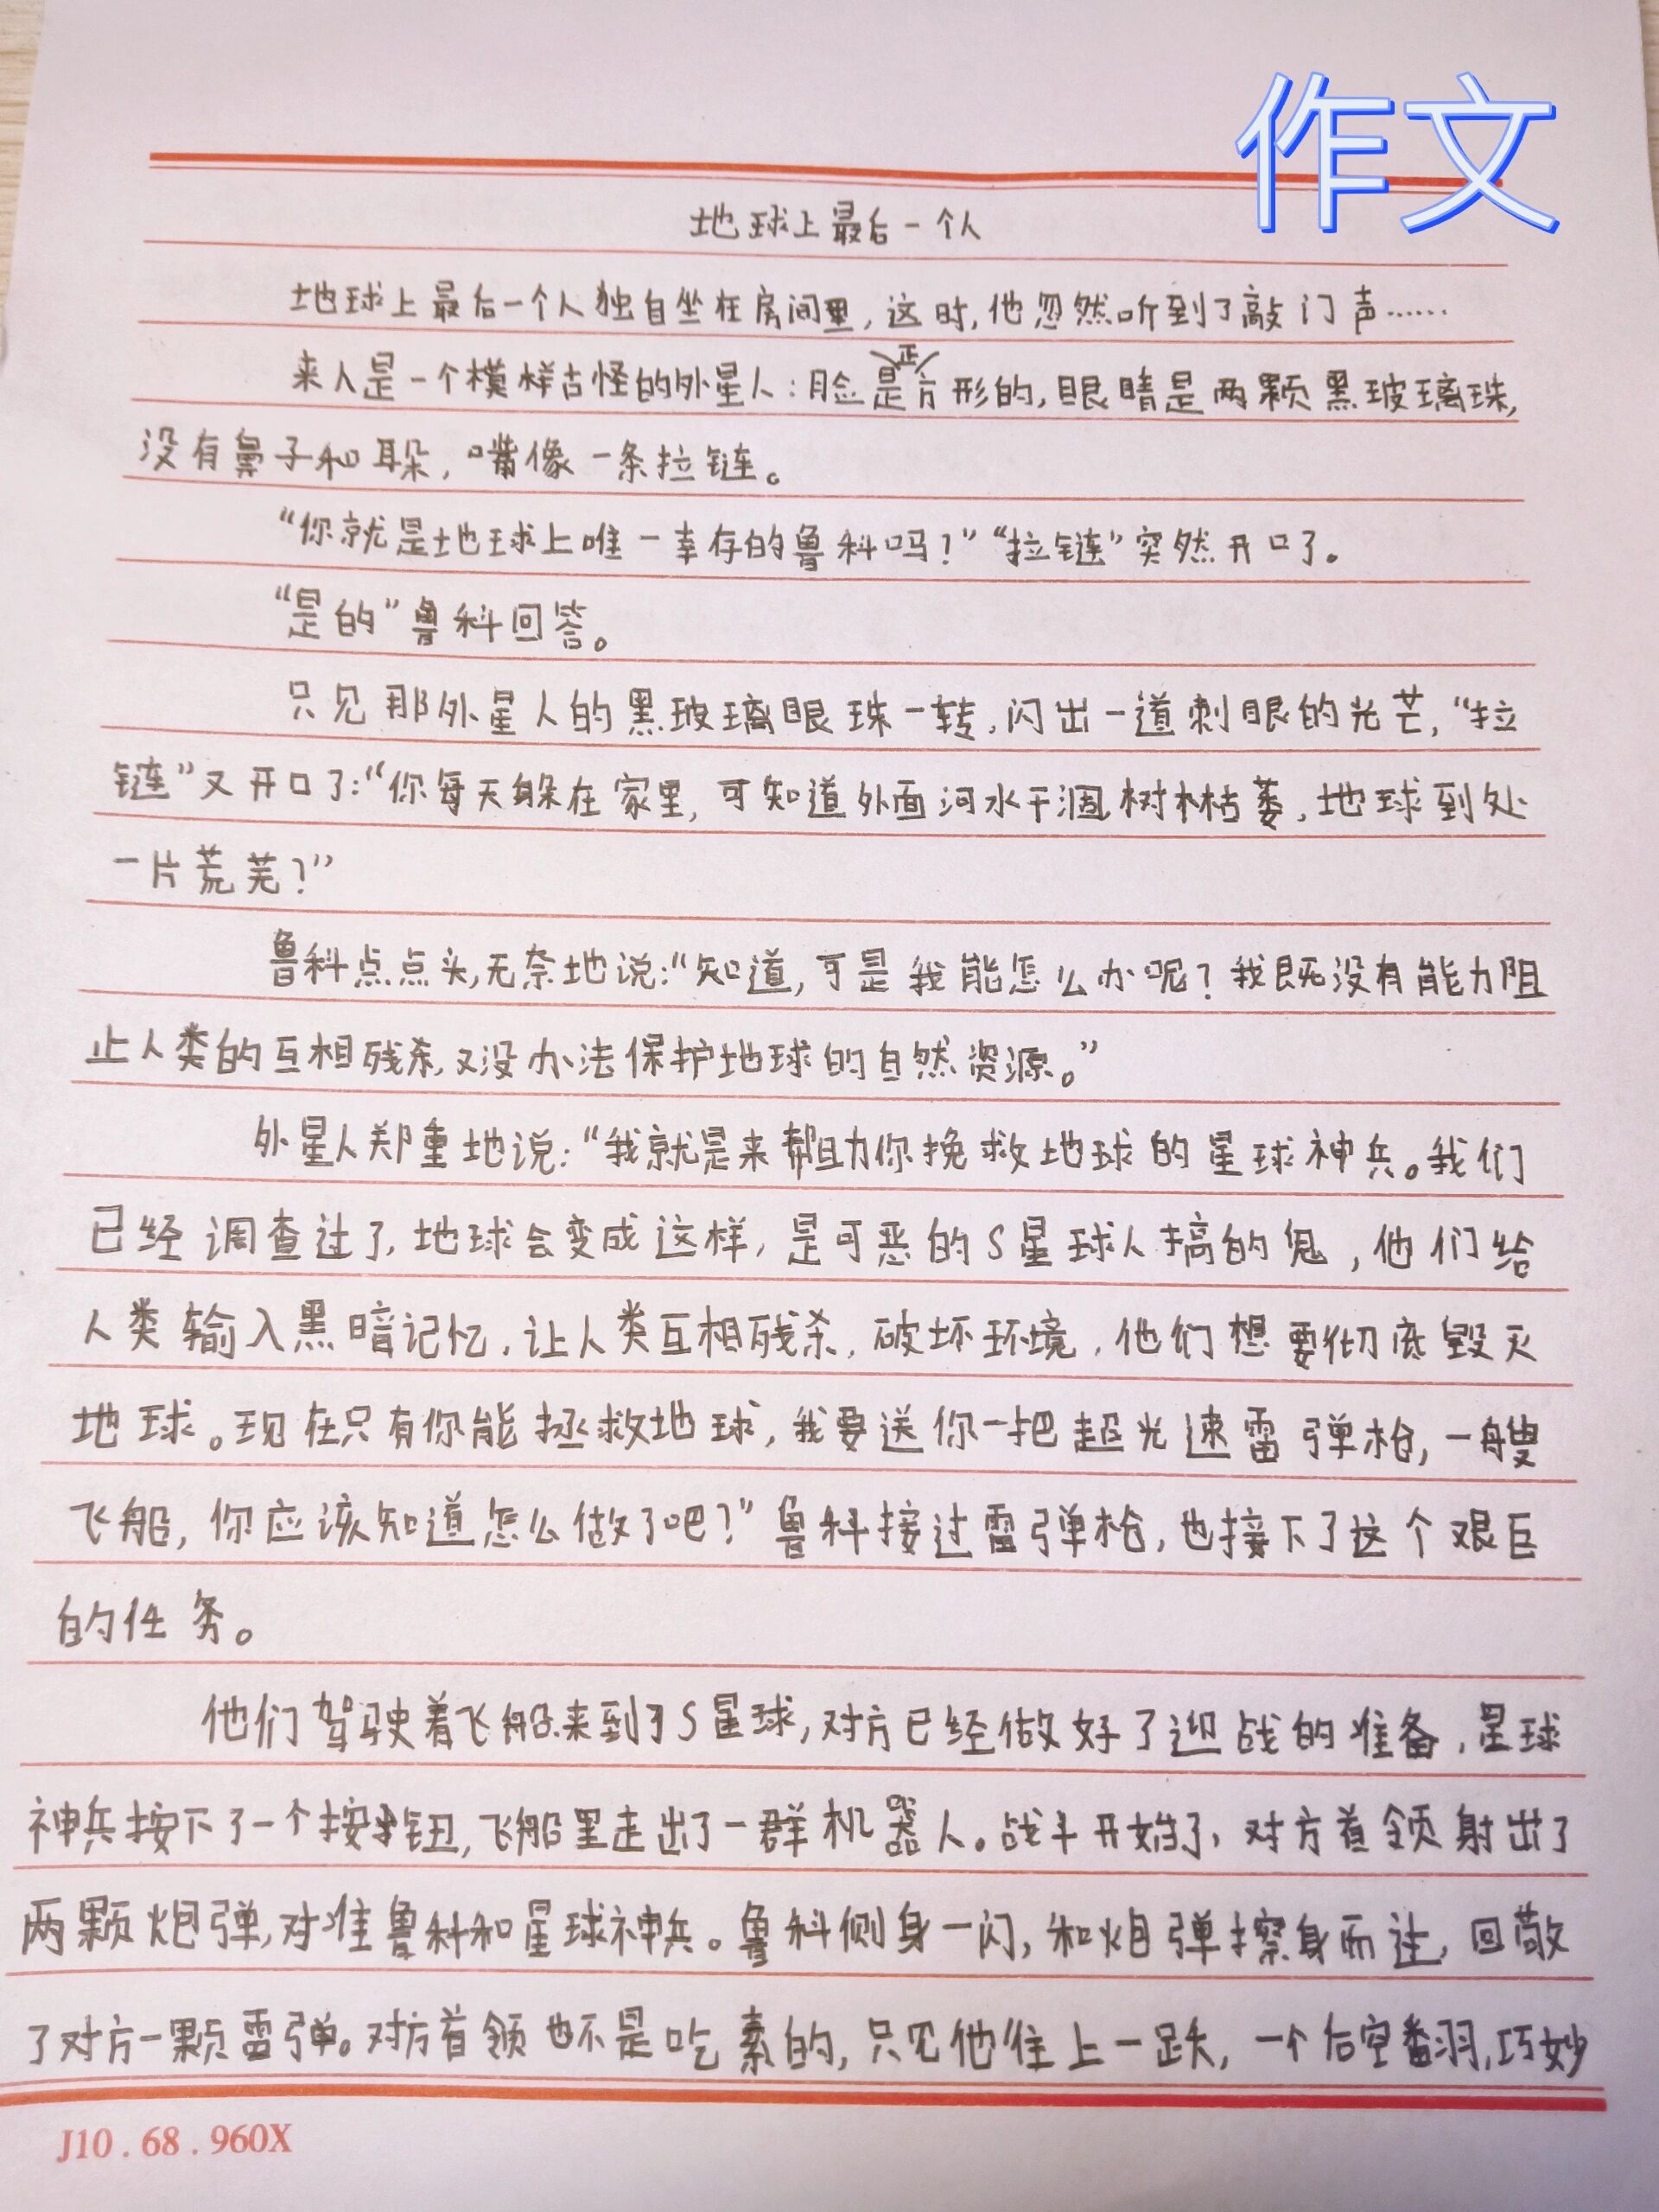 作文
地球上最后一个人
地球上最后一个人独自坐在房间里，这时，他忽然听到了敲门声……
来人是一个模样古怪的外星人：脸是正方形的，眼睛是两颗黑玻璃珠，
没有鼻子和耳朵，嘴像一条拉链。
“你就是地球上唯一幸存的鲁科吗？”“拉链”突然开口了。
“是的”鲁科回答。
只见那外星人的黑玻璃眼珠一转，闪出一道刺眼的光芒，“拉
链”又开口了：“你每天躲在家里，可知道外面河水干涸，树林枯萎，地球到处
一片荒芜？”
鲁科点点头，无奈地说：“知道，可是我能怎么办呢？我既没有能力阻
止人类的互相残杀，又没办法保护地球的自然资源。”
外星人郑重地说：“我就是来帮助你挽救地球的星球神兵。我们
已经调查过了，地球会变成这样，是可恶的S星球人搞的鬼，他们给
人类输入黑暗记忆，让人类互相残杀，破坏环境，他们想要彻底毁灭
地球。现在只有你能拯救地球，我要送你一把超光速雷弹枪，一艘
飞船，你应该知道怎么做了吧？”鲁科接过雷弹枪，也接下了这个艰巨
的任务。
他们驾驶着飞船来到了S星球，对方已经做好了迎战的准备，星球
神兵按下了一个按钮，飞船里走出了一群机器人。战斗开始了，对方首领射出了
两颗炮弹，对准鲁科和星球神兵。鲁科侧身一闪，和炮弹擦身而过，回敬
了对方一颗雷弹。对方首领也不是吃素的，只见他往上一跃，一个后空翻，巧妙
J10.68.960X